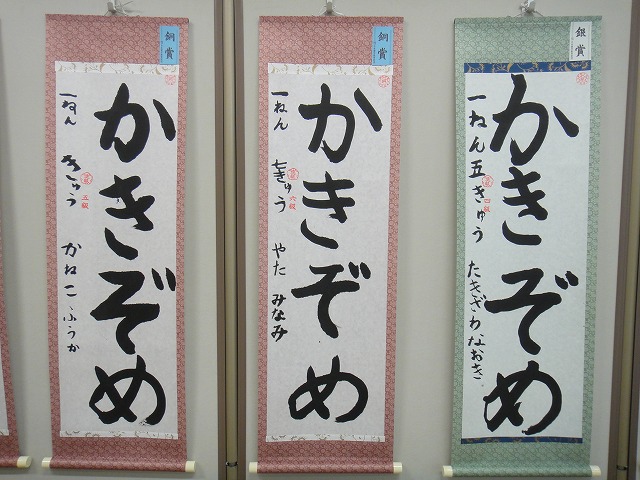 銀賞
かきぞめ
一ねん五きゅう たきざわなおき
四級
銅賞
かきぞめ
一ねん 七きゅう やた みなみ
六級
銅賞
かきぞめ
一ねん きゅう かねこふうか
五級